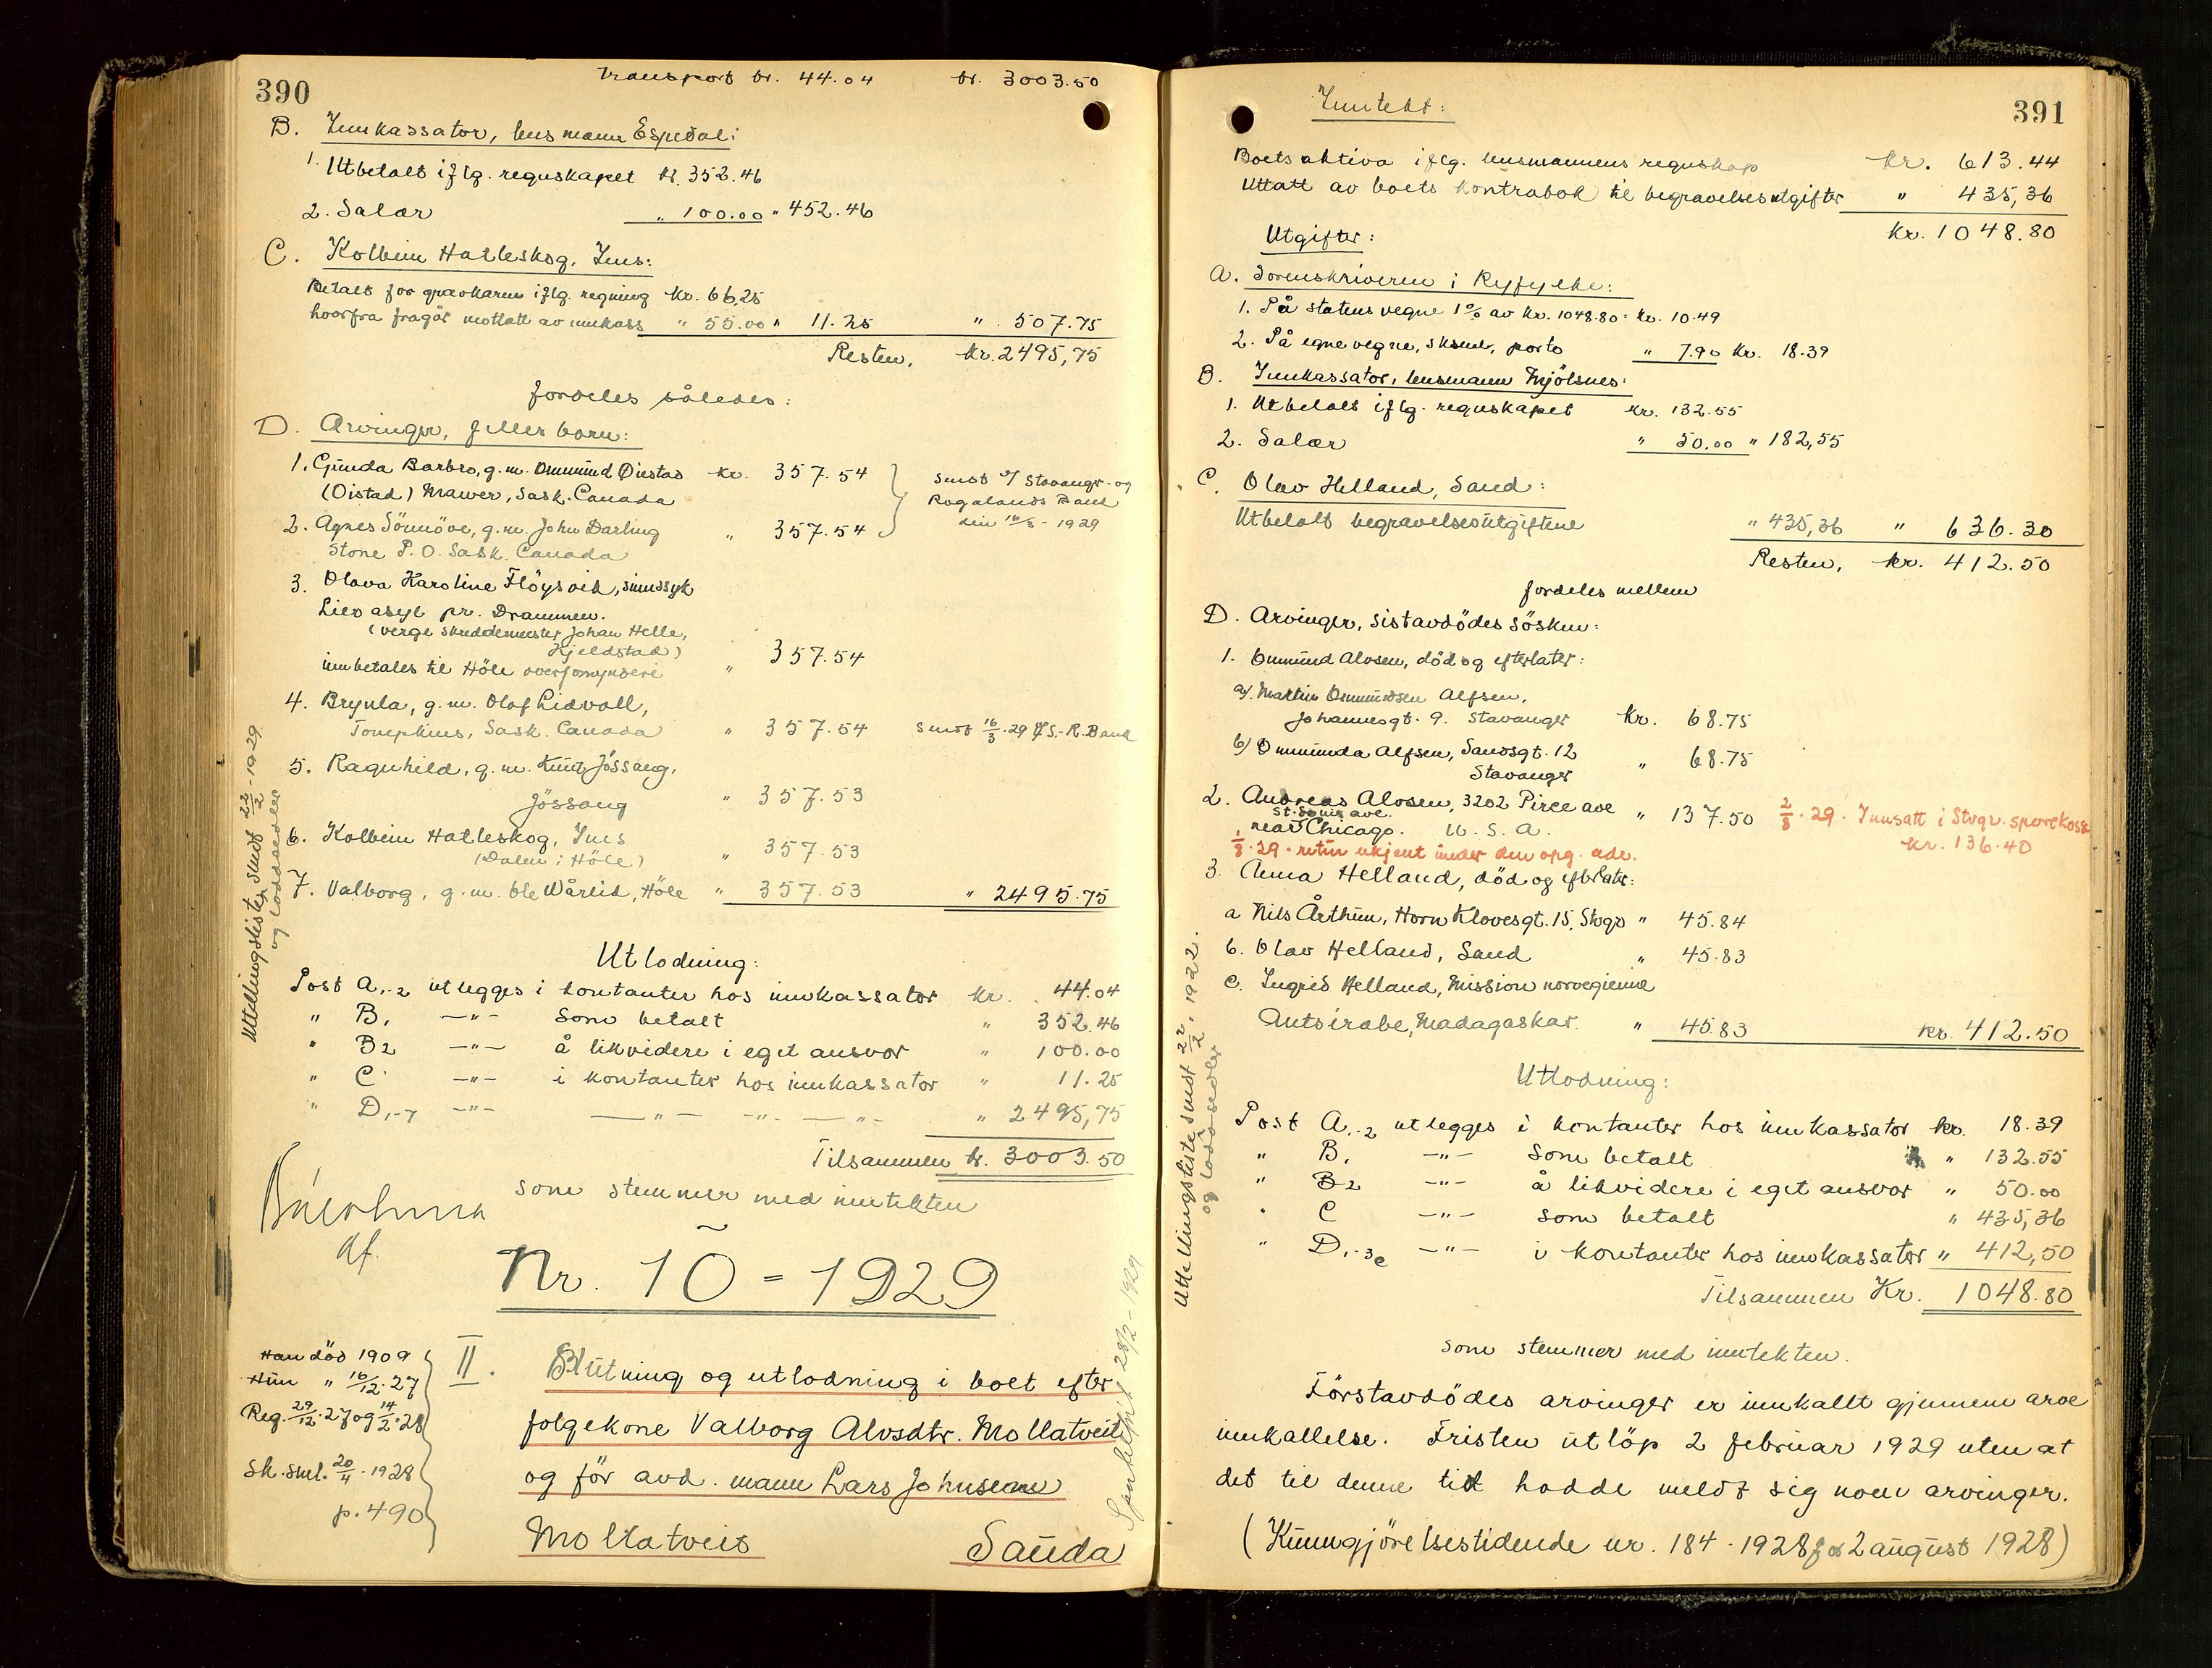 390
Transport kr. 44.04 kr. 3003.50
B. Innkassator, lensmann Espedal:
1. Utbetalt iflg. regnskapet kr. 352.46
2. Salær " 100.00 " 452.46
C. Kolbein Hatleskog, Ims:
Betalt for gravkaren iflg. regning kr. 66,25
hvorfra fragår mottatt av innkass " 55.00 " 11.25 " 507.75
Resten, kr. 2495,75
fordeles således:
D. Arvinger, felles born:
1. Gunda Barbro, g.m. Ommund Øiestad kr. 357.54
(Oistad) Mawer, Sask. Canada
Sendt g/ Stavanger- og
Rogalands Bank
den 16/3 - 1929
2. Agnes Sönnöve, g.m. John Darling
Stone P.O. Sask. Canada " 357.54
3. Olava Karoline Flöysvik, sinnssyk
Lier asyl pr. Drammen.
(verge skreddermester Johan Helle,
Kjeldstad)
innbetales til Höle overformynderi " 357.54
4. Brynla, g.m. Olaf Lidvoll,
Tompkins, Sask. Canada " 357.54 Sendt 16/3.29 g/ S.- R. Bank
5. Ragnhild, g.m. Knut Jössang,
Jössang " 357.53
6. Kolbein Hatleskog, Ims
(Dalen i Höle) " 357.53
7. Valborg, g.m. Ole Wårlid, Höle " 357.53 " 2495.75
Utellingslister sendt 22/2 - 1929
og loddsedler
Utlodning:
Post A,-2 utlegges i kontanter hos innkassator kr. 44.04
" B, —"— Som betalt " 352.46
" B2 —"— å likvidere i eget ansvar " 100.00
" C —"— i kontanter hos innkassator " 11.25
" D,-7 —"— —"— —"— —"— " 2495,75
Tilsammen kr. 3003.50
som stemmer med inntekten
af.
Nr. 10 = 1929
Han död 1909
Hun " 16/12.27
Reg. 29/12.27 og 14/2.28
Sk. saml. 20/4 - 1928
p. 490
II. Slutning og utlodning i boet efter
folgekone Valborg Alvsdtr. Mollatveit
ogför avd. mann Lars Johnsens
Mollatveit Sauda
28/2 - 1929
391
Inntekt:
Boets aktiva iflg. lensmannens regnskap kr. 613.44
Uttatt av boets kontrabok til begravelsesutgifter " 435,36
kr. 1048.80
Utgifter:
A. Sorenskriveren i Ryfylke:
1. På statens vegne 1% av kr. 1048.80 = kr. 10.49
2. På egne vegne, skm., porto " 7.90 kr. 18.39
B. Innkassator, lensmann Mjölsnes:
1. Utbetalt iflg. regnskapet kr. 132.55
2. Salær " 50.00 " 182,55
C. Olav Helland, Sand:
Utbetalt begravelsesutgiftene " 435,36 " 636.30
Resten, kr. 412.50
fordeles mellem
D. Arvinger, sistavdödes sösken:
1. Ommund Alvsen, död og efterlater:
a/. Martin Ommundsen Alfsen,
Johannesgt. 9. Stavanger kr. 68.75
b/ Ommunda Alfsen, Sandsgt. 12
Stavanger " 68.75
2. Andreas Alvsen, 3202 Pirce ave " 137.50 2/8.29. Innsatt i Stvgr. sparekasse
St. Louis ave.
near Chicago. U.S.A. kr. 136.40
1/8.29. retur ukjent under den opg. adr.
3. Anna Helland, död og efterlater:
a Nils Årthun, Horn Klovesgt. 15, Stvgr " 45.84
b. Olav Helland, Sand " 45.83
c. Ingrid Helland, Mission norvegienne
Antsirabe, Madagaskar. " 45.83 kr. 412.50
Utellingsliste sendt 22/2. 1922.
og loddsedler
Utlodning:
Post A,-2 utlegges i kontanter hos innkassator kr. 18.39
" B, —"— Som betalt " 132.55
" B2 —"— å likvidere i eget ansvar " 50.00
" C —"— som betalt " 435,36
" D,-3c —"— i kontanter hos innkassator " 412,50
Tilsammen Kr. 1048.80
som stemmer med inntekten.
Förstavdödes arvinger er innkallt gjennem arve
innkallelse. Fristen utlöp 2 februar 1929 uten at
det til denne tid hadde meldt sig noen arvinger.
(Kunngjörelsestidende nr. 184 - 1928 for 2 august 1928)